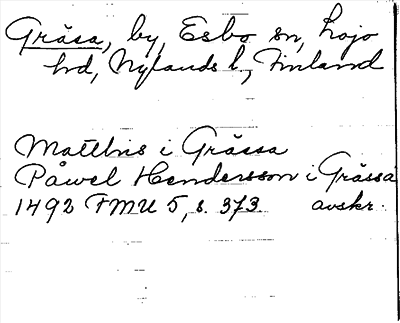 Gråsa, by, Esbo sn, Lojo
hd, Nylands l., Finland
Matthis i Gråssa
Påwel Hendersson i Gråssa
1492 FMU 5, s. 373. avskr.